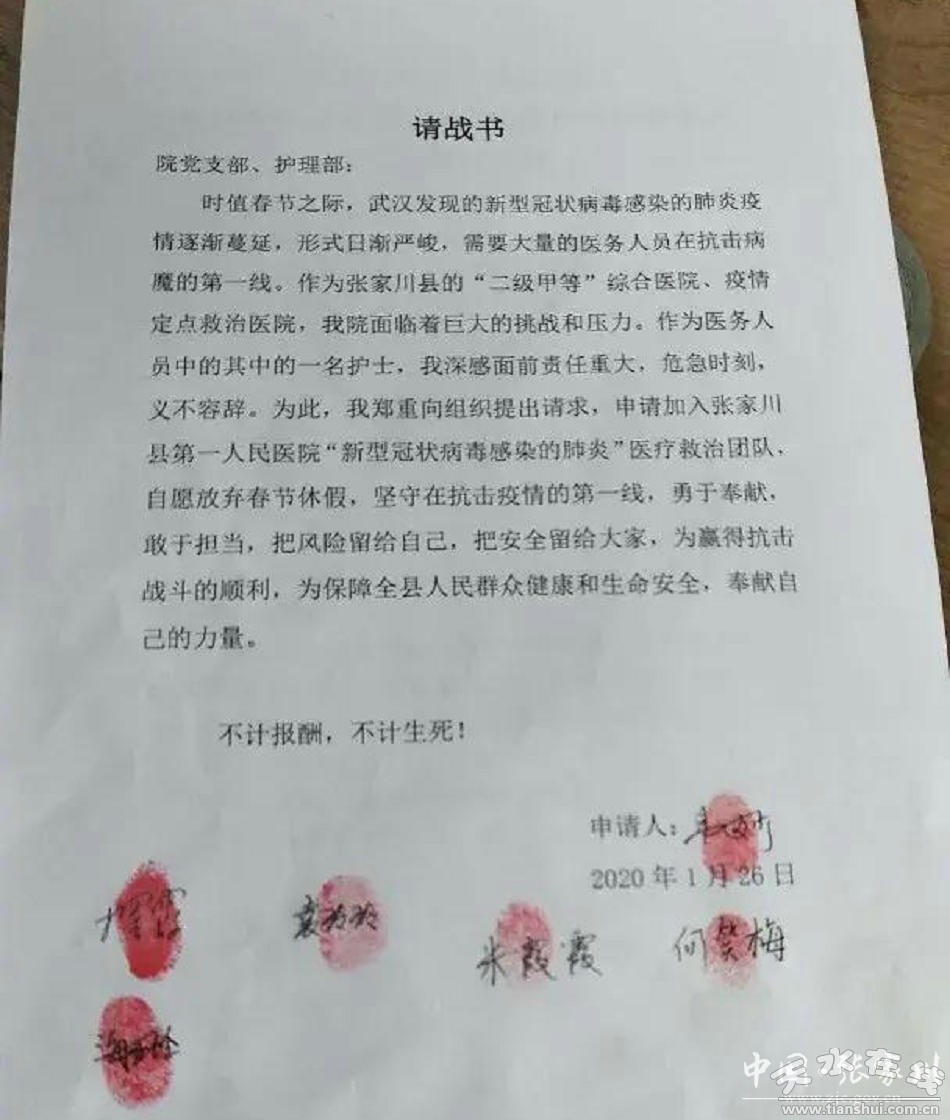 请战书
院党支部、护理部：
时值春节之际，武汉发现的新型冠状病毒感染的肺炎疫
情逐渐蔓延，形式日渐严峻，需要大量的医务人员在抗击病
魔的第一线。作为张家川县的“二级甲等”综合医院、疫情
定点救治医院，我院面临着巨大的挑战和压力。作为医务人
员中的其中的一名护士，我深感面前责任重大，危急时刻，
义不容辞。为此，我郑重向组织提出请求，申请加入张家川
县第一人民医院“新型冠状病毒感染的肺炎”医疗救治团队，
自愿放弃春节休假，坚守在抗击疫情的第一线，勇于奉献，
敢于担当，把风险留给自己，把安全留给大家，为赢得抗击
战斗的顺利，为保障全县人民群众健康和生命安全，奉献自
己的力量。
不计报酬，不计生死！
申请人：
2020 年 1 月 26 日
袁玲玲
米霞霞
何笑梅
www.tianshui.com.cn